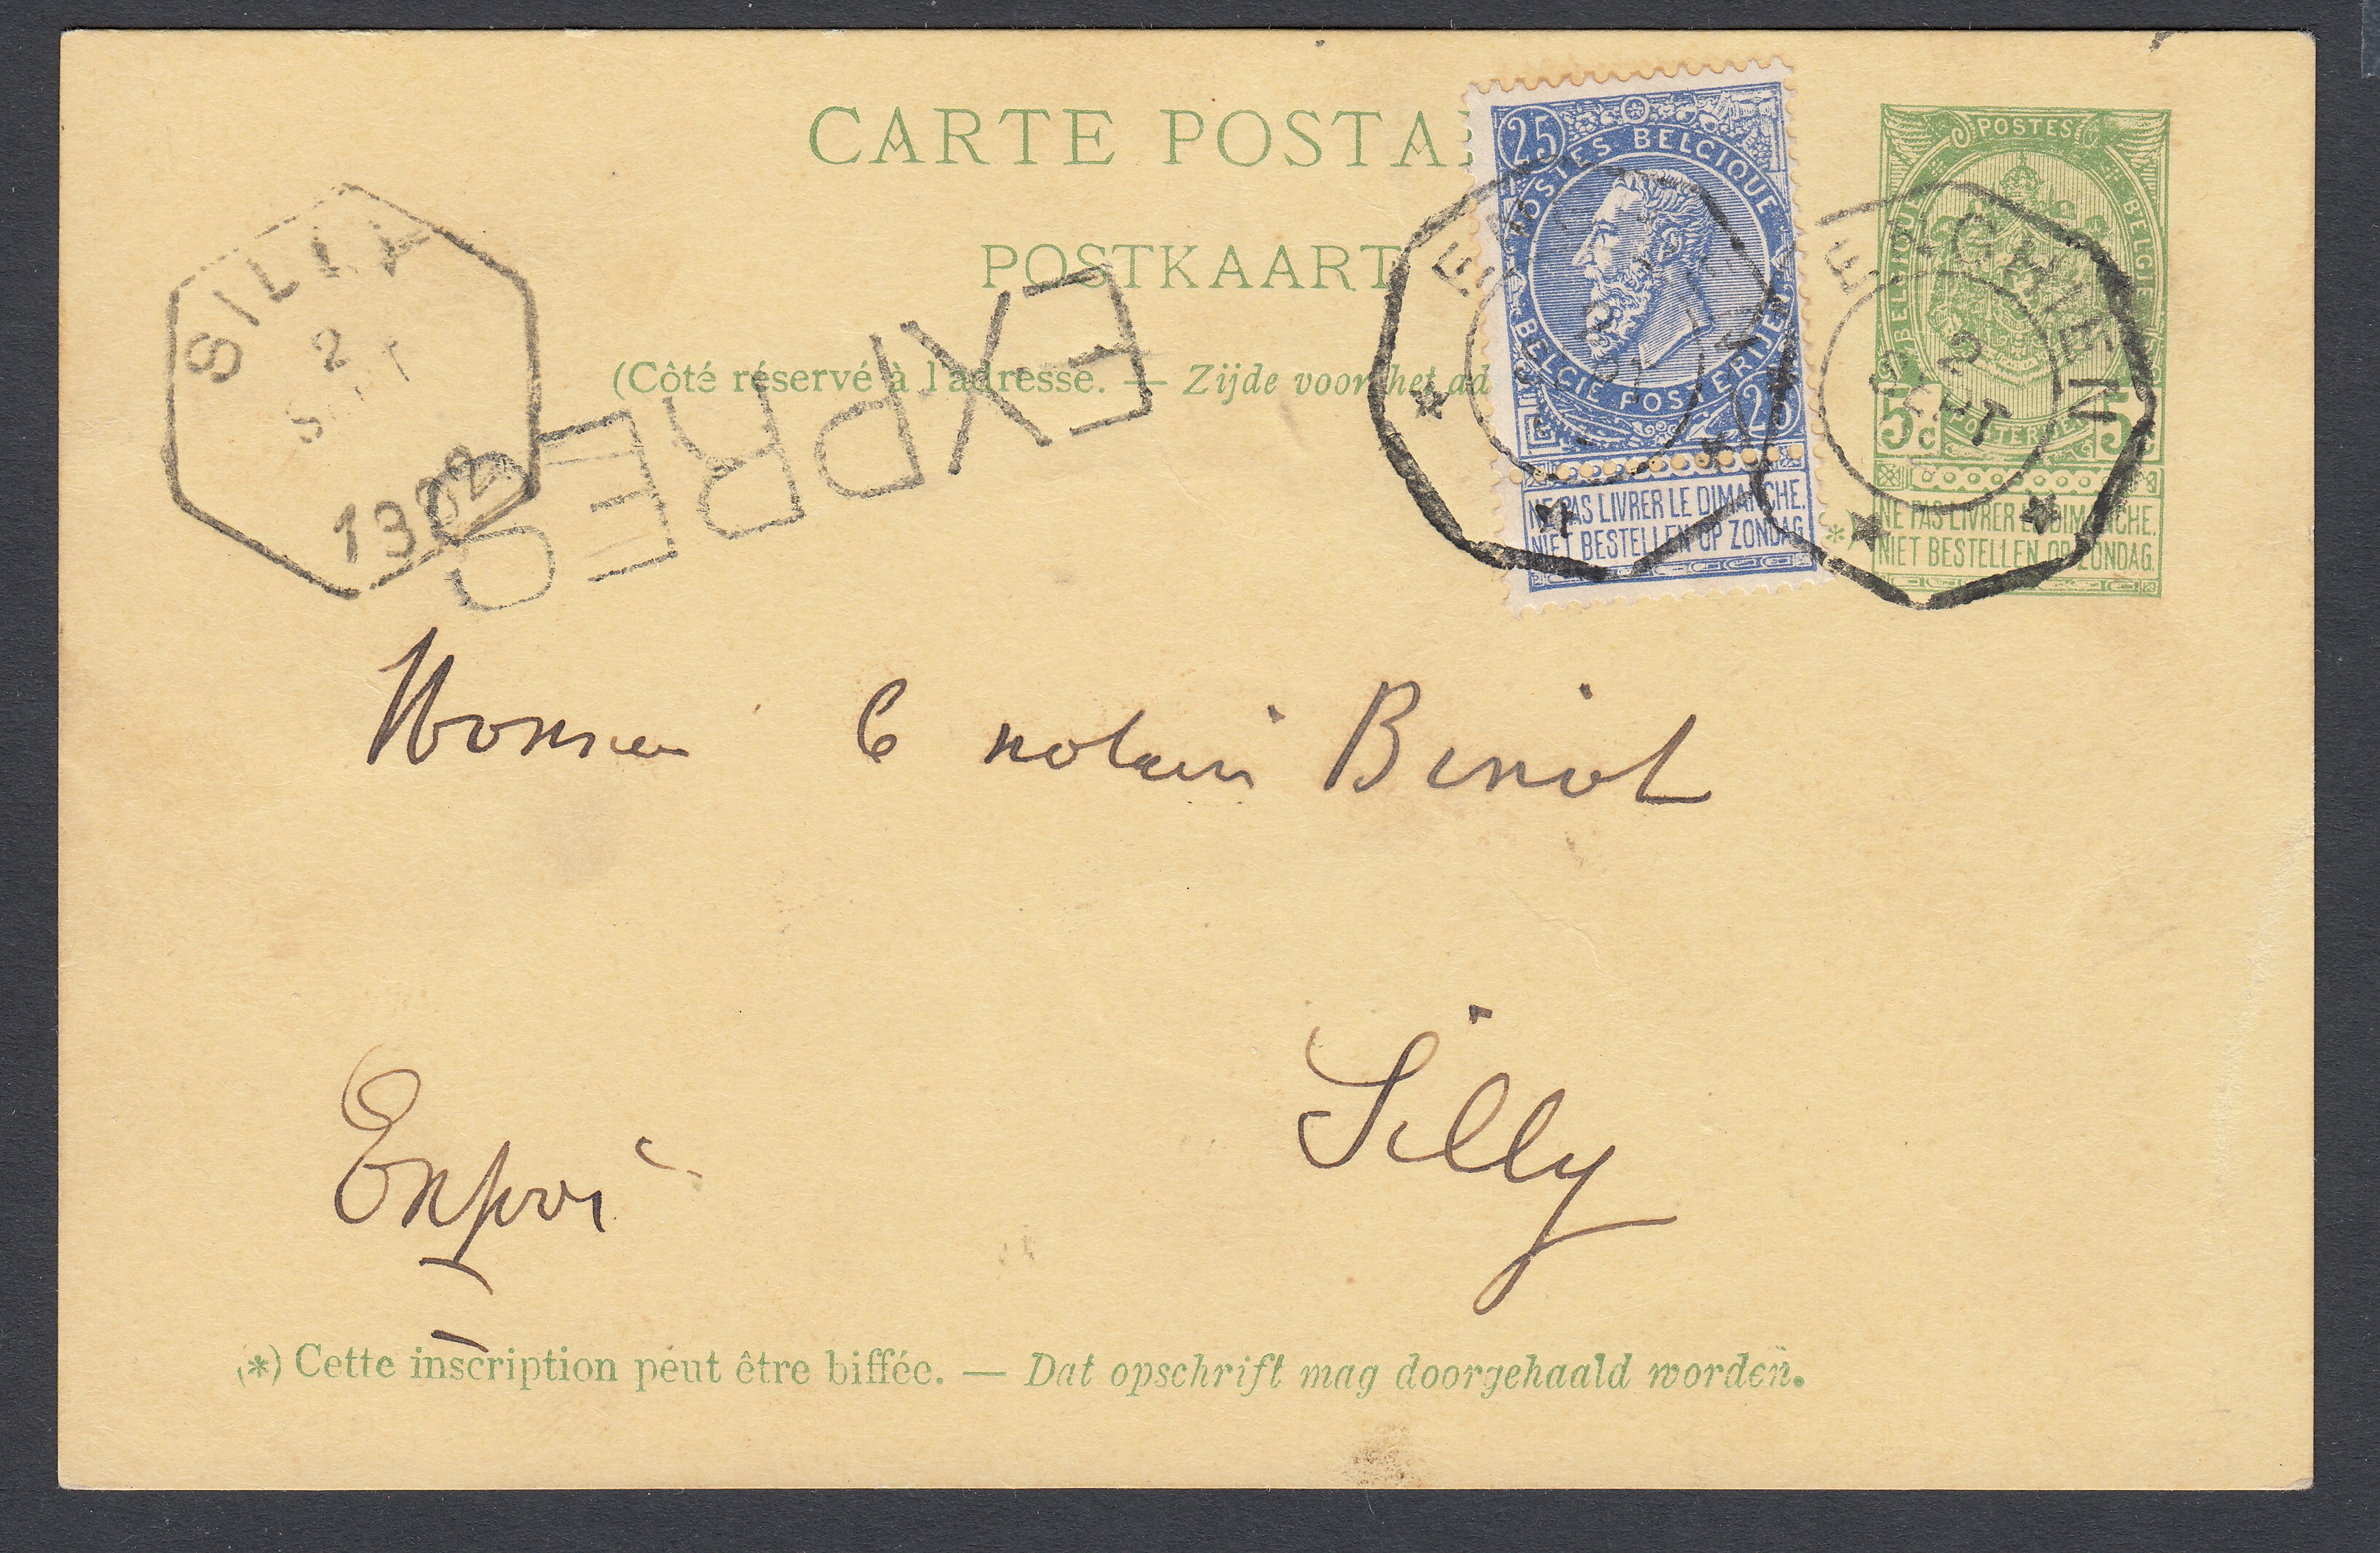 CARTE POSTA
POSTKAART
(Côté réservé à l'adresse. — Zijde voor het ad
25 POSTES BELGIQUE
BELGIË POSTERIJEN 25
NE PAS LIVRER LE DIMANCHE.
NIET BESTELLEN OP ZONDAG
POSTES
BELGIQUE BELGIE
5c 5c
POSTERIJEN
*)
NE PAS LIVRER LE DIMANCHE.
NIET BESTELLEN OP ZONDAG.
ENGHIEN
2
SEPT
SILLY
2
SEPT
1902
EXPRES
Monsieur le notaire Benoit
Silly
Expri
(*) Cette inscription peut être biffée. — Dat opschrift mag doorgehaald worden.